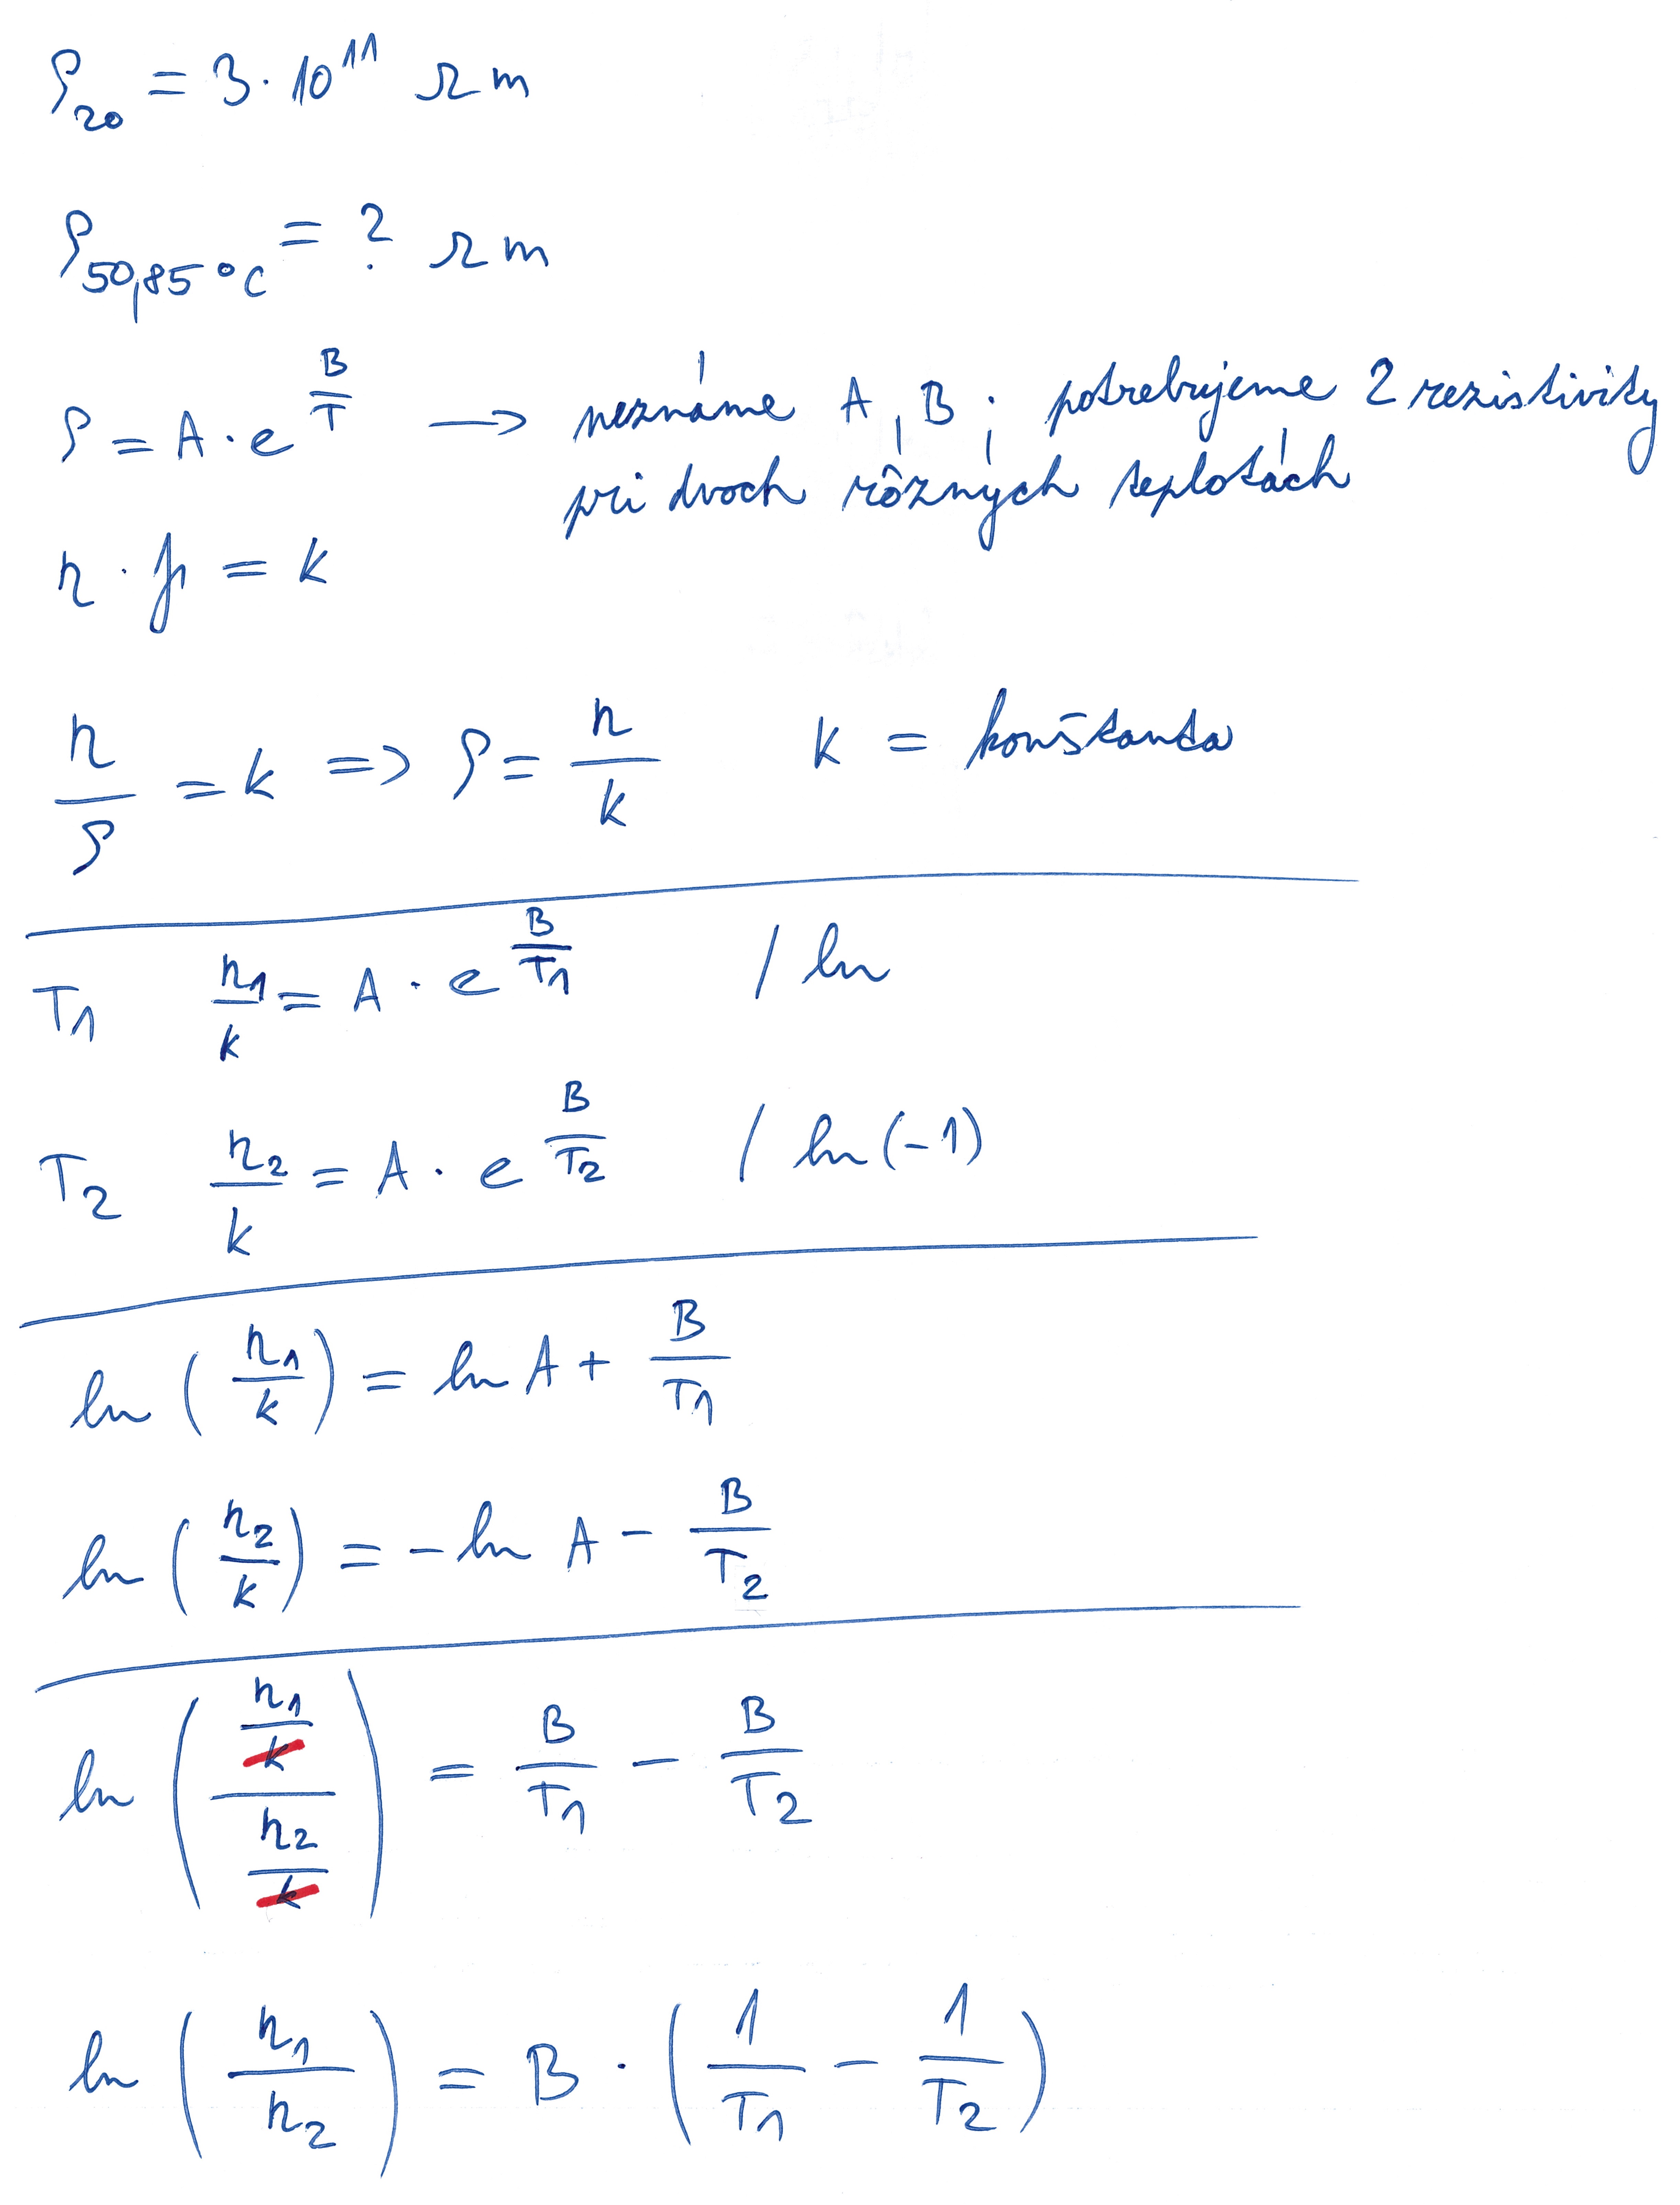 ρ₂₀ = 3 · 10¹¹ Ω m
ρ₅₀,₈₅ °C = ? Ω m
ρ = A · e^(B/T) → neznáme A, B; potrebujeme 2 rezistivity
pri dvoch rôznych teplotách
η · γ = k
η/ρ = k => ρ = η/k   k = konštanta
T₁   η₁/k = A · e^(B/T₁)   / ln
T₂   η₂/k = A · e^(B/T₂)   / ln (-1)
ln (η₁/k) = ln A + B/T₁
ln (η₂/k) = - ln A - B/T₂
ln ((η₁/k)/(η₂/k)) = B/T₁ - B/T₂
ln (η₁/η₂) = B · (1/T₁ - 1/T₂)